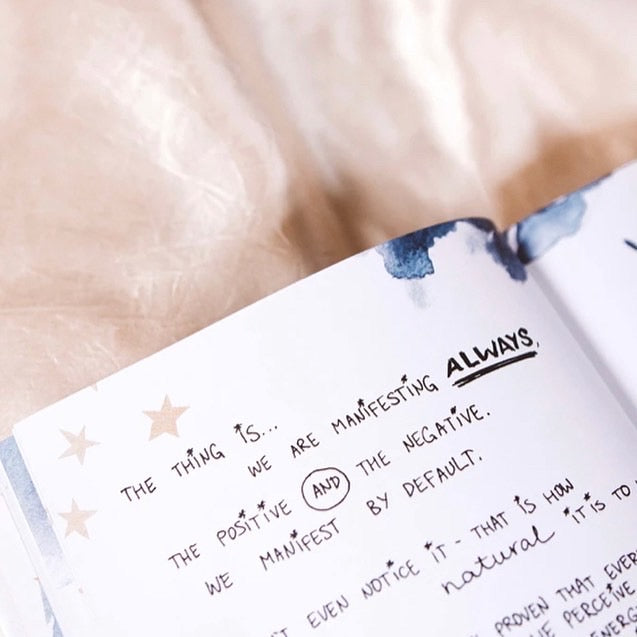 THE THING IS...
WE ARE MANIFESTING ALWAYS.
THE POSITIVE AND THE NEGATIVE.
WE MANIFEST BY DEFAULT.
EVEN NOTICE IT - THAT IS HOW
natural IT IS TO
PROVEN THAT
PERCEIVE